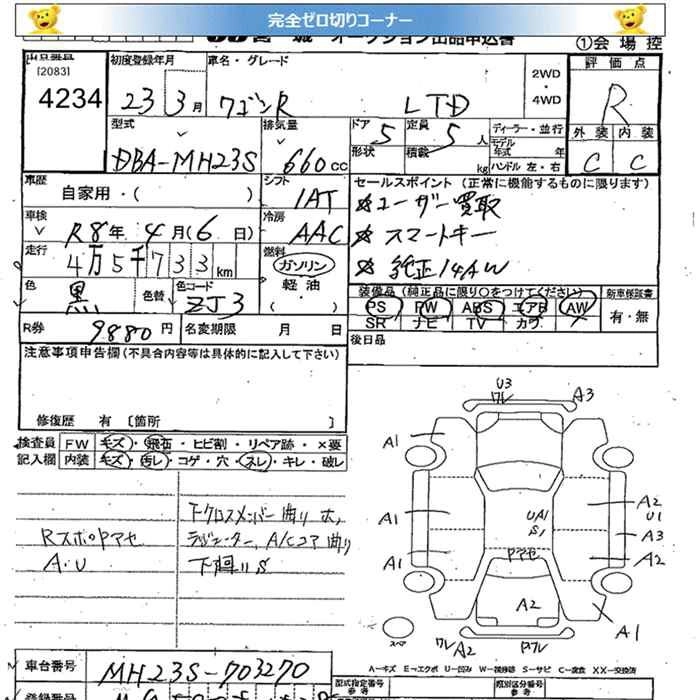 完全ゼロ切りコーナー
オークション出品申込書
①会場控
出品番号
[2083]
4234
初度登録年月
23 3月
車名・グレード
ワゴンR LTD
2WD
・
4WD
評価点
R
外装 内装
C C
型式
DBA-MH23S
排気量
660cc
ドア 5
形状
定員 5人
積載 kg
ディーラー・並行
モデル年式 年
ハンドル 左・右
車歴
自家用・( )
シフト
IAT
セールスポイント (正常に機能するものに限ります)
☆ユーザー買取
☆スマートキー
☆純正14AW
車検
R8年 4月(6日)
冷房
AAC
走行
4万5千733km
燃料
ガソリン
軽油・
( )
色
黒
色替
色コード
ZJ3
装備品 (純正品に限り○をつけてください)
PS PW ABS エアB AW
SR ナビ TV カワ
新車保証書
有・無
R券
9880円
名変期限 月 日
後日品
注意事項申告欄 (不具合内容等は具体的に記入して下さい)
修復歴 有 〔箇所 〕
検査員 FW キズ・飛石・ヒビ割・リペア跡・×要
記入欄 内装 キズ・汚レ・コゲ・穴・スレ・キレ・破レ
RスポロPアセ
A・U
下クロスメンバー曲り
ラジエーター、A/Cコア曲り
下廻りS
U3
ワレ
A3
A1
A1
A1
UA1
S1
Pアセ
A2
U1
A3
A2
A2
A1
スペア
ワレ
A2
A-キズ E-エクボ U-凹み W-補修跡 S-サビ C-腐食 XX-交換済
車台番号
MH23S-703270
型式指定番号
参考
類別区分番号
参考
登録番号